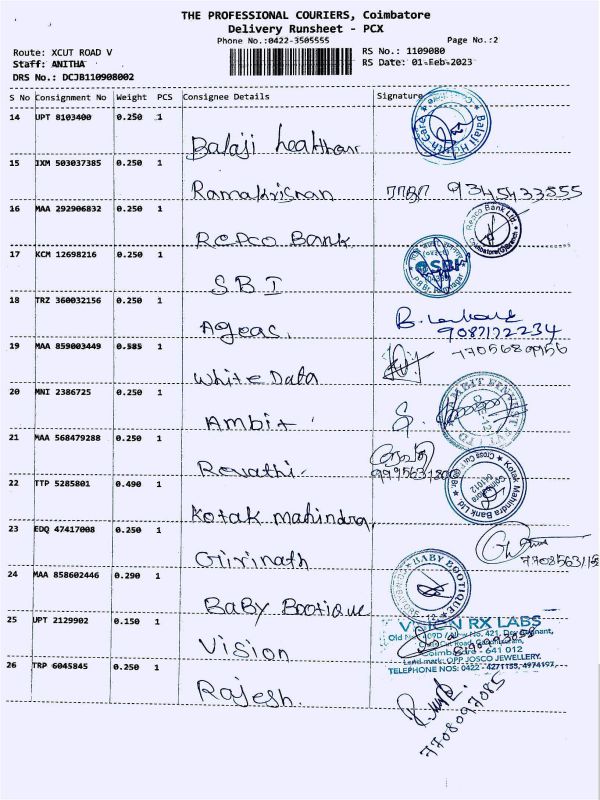 THE PROFESSIONAL COURIERS, Coimbatore
Delivery Runsheet - PCX
Phone No.:0422-3505555 Page No.:2
Route: XCUT ROAD V RS No.: 1109080
Staff: ANITHA RS Date: 01-Feb-2023
DRS No.: DCJB110908002
S No Consignment No Weight PCS Consignee Details Signature
14 UPT 8103400 0.250 1
Balaji healthcare
15 IXM 503037385 0.250 1
Ramakrisnan ராஜா 9345433555
16 MAA 292906832 0.250 1 Repco Bank Ltd.
Repco Bank
17 KCM 12698216 0.250 1
SBI
SBI
18 TRZ 360032156 0.250 1
Ageas. 9087122234
19 MAA 859003449 0.585 1
White Data
20 MNI 2386725 0.250 1
Ambit
21 MAA 568479288 0.250 1
Revathi.
22 TTP 5285801 0.490 1 Kotak Mahindra Bank Ltd.
Kotak mahindra,
23 EDQ 47417008 0.250 1
Girinath
24 MAA 858602446 0.290 1 BABY BOOTIQUE
BaBy Bootique
25 UPT 2129902 0.150 1 VISION RX LABS
Vision
Coimbatore - 641 012
Land mark: OPP JOSCO JEWELLERY.
26 TRP 6045845 0.250 1 TELEPHONE NOS: 0422 - 4271155, 4974197
Rajesh.
7708097085